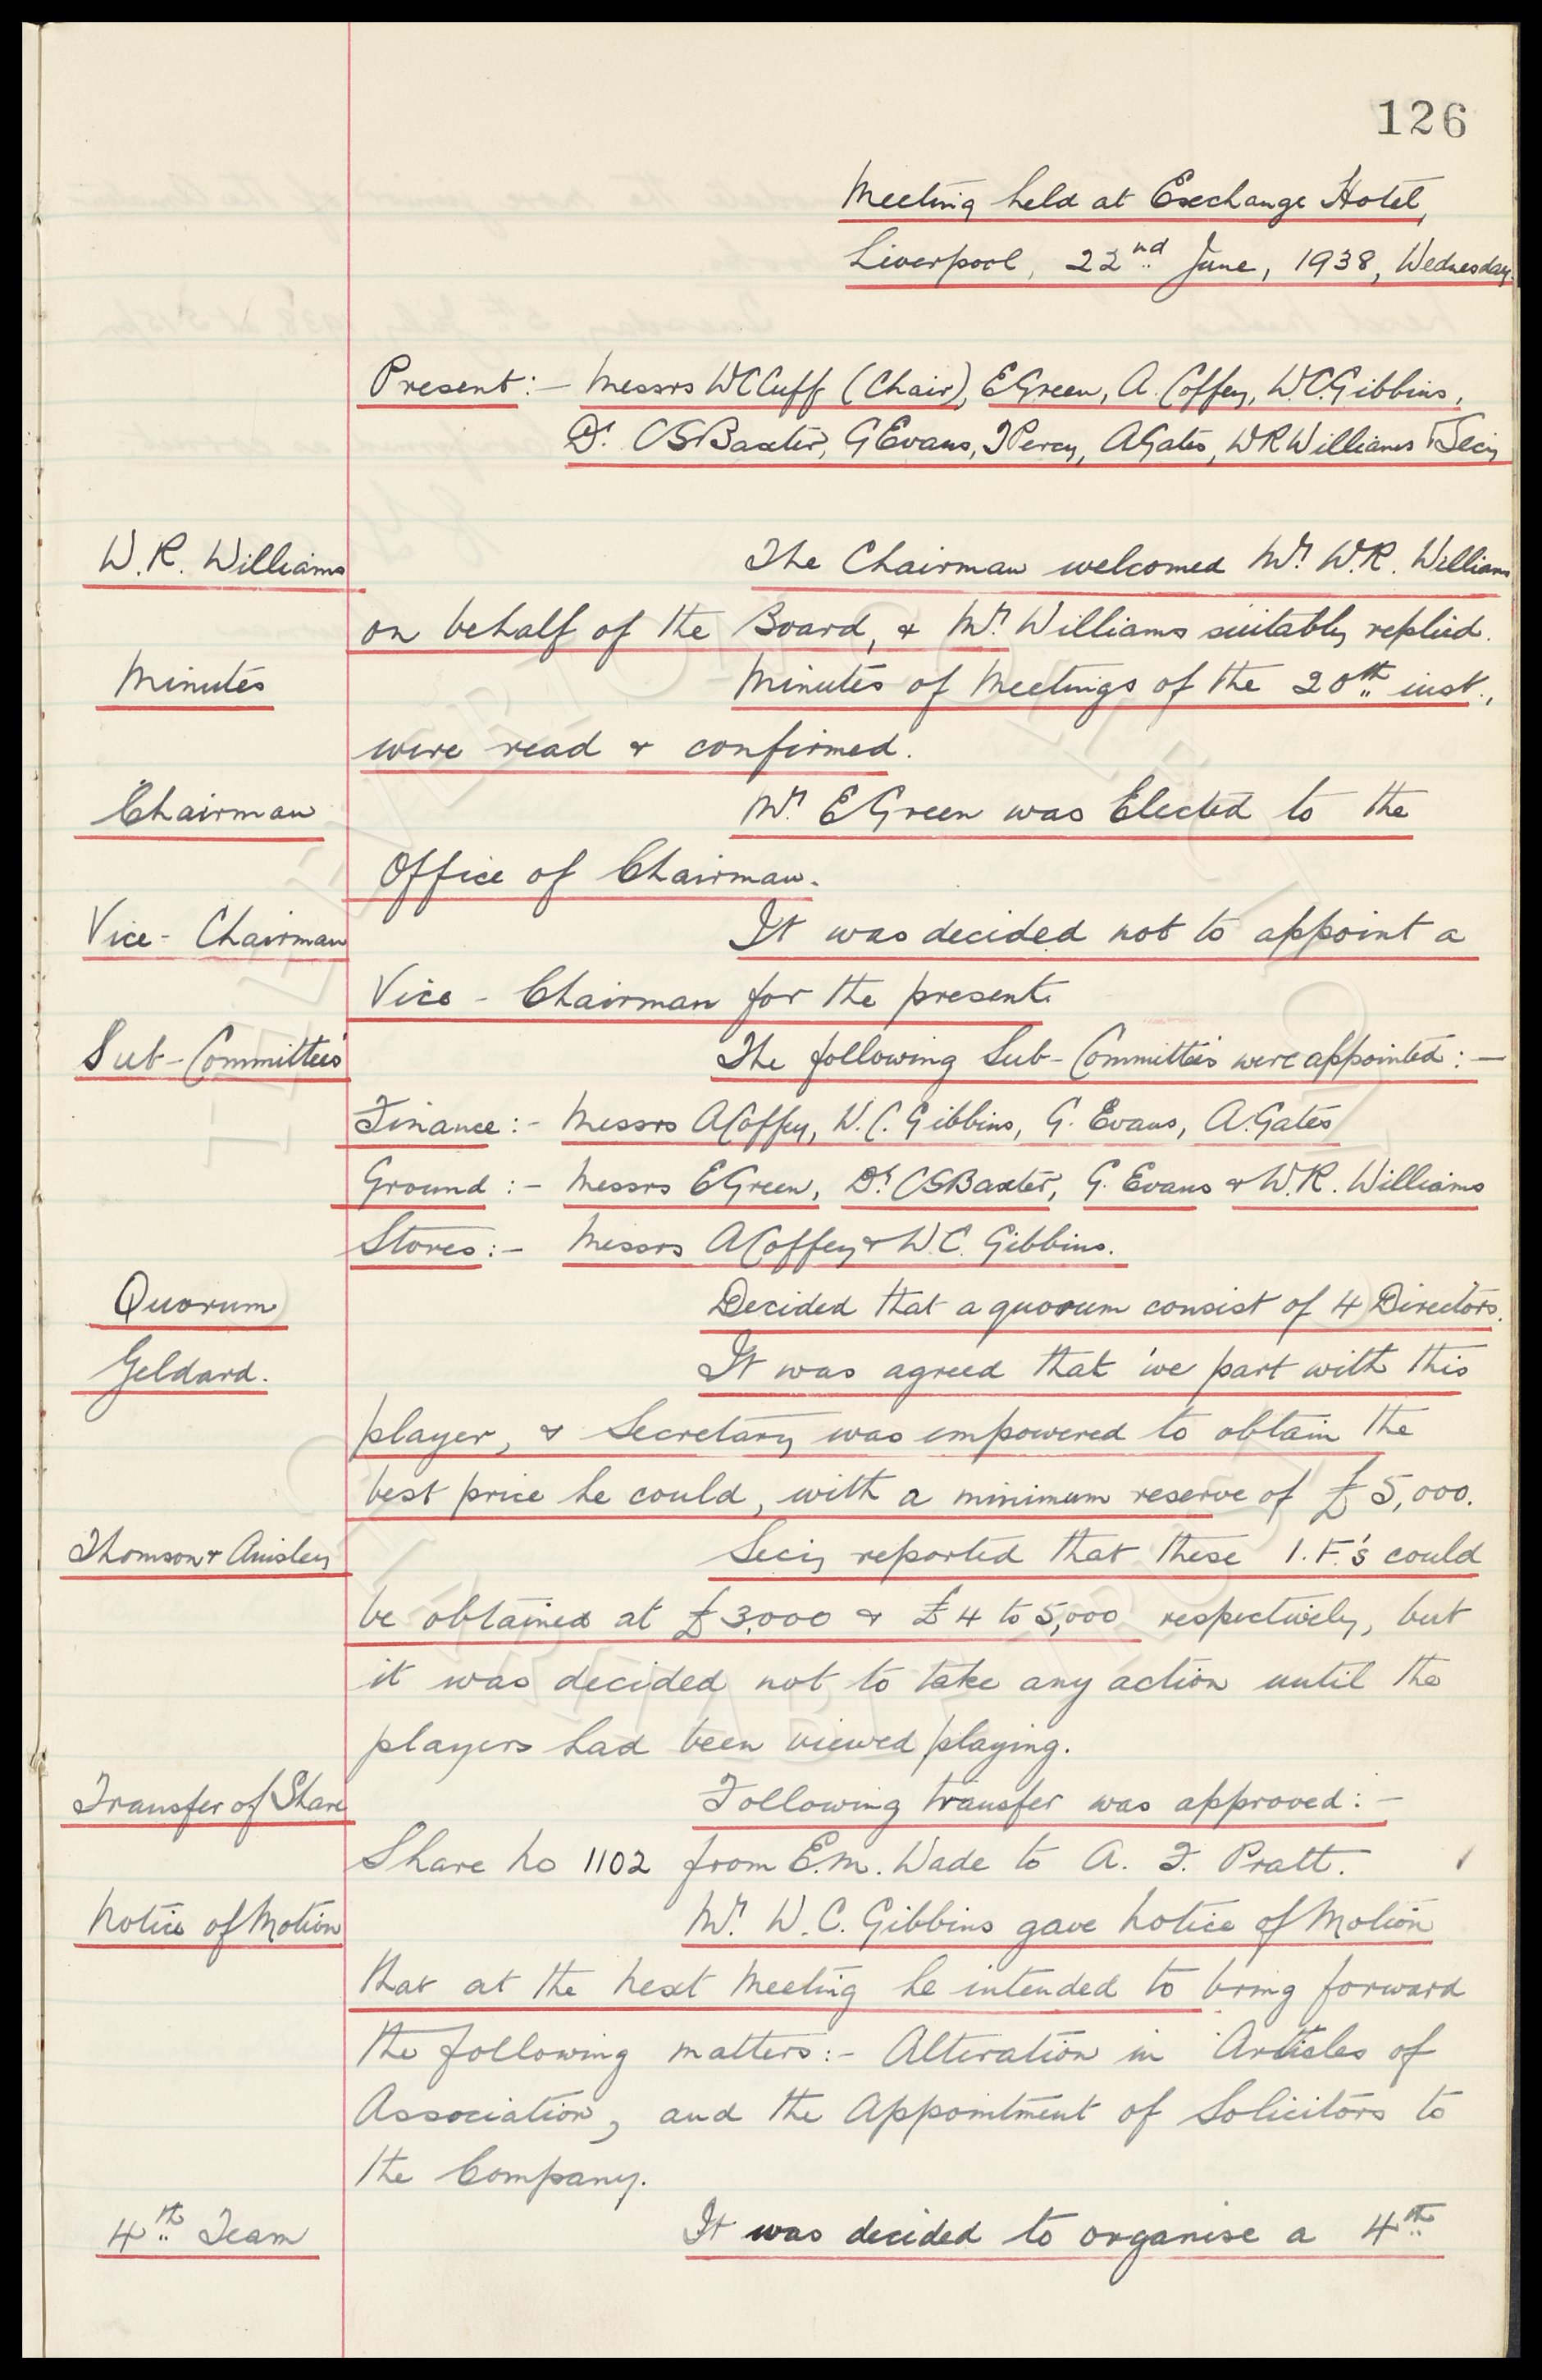 126
Meeting held at Exchange Hotel,
Liverpool, 22nd June, 1938, Wednesday.
Present:- Messrs WCCuff (Chair), EGreen, A. Coffey, W.C.Gibbins,
Dr. CSBaxter, GEvans, TPercy, AGates, WRWilliams & Secy
W.R. Williams The Chairman welcomed Mr. W.R. Williams
on behalf of the Board, & Mr. Williams suitably replied.
Minutes Minutes of Meetings of the 20th inst.,
were read & confirmed.
Chairman Mr. EGreen was Elected to the
Office of Chairman.
Vice-Chairman It was decided not to appoint a
Vice-Chairman for the present.
Sub-Committees The following Sub-Committees were appointed:-
Finance:- Messrs ACoffey, W.C.Gibbins, G. Evans, A.Gates
Ground:- Messrs EGreen, Dr. CSBaxter, G. Evans & W.R. Williams
Stores:- Messrs ACoffey & W.C. Gibbins.
Quorum Decided that a quorum consist of 4 Directors.
Geldard. It was agreed that we part with this
player, & Secretary was empowered to obtain the
best price he could, with a minimum reserve of £5,000.
Thomson & Ainsley Secy reported that these I.F.'s could
be obtained at £3,000 & £4 to 5,000 respectively, but
it was decided not to take any action until the
players had been viewed playing.
Transfer of Share Following transfer was approved:-
Share No 1102 from E.M. Wade to A. F. Pratt.
Notice of Motion Mr. W.C. Gibbins gave Notice of Motion
that at the next Meeting he intended to bring forward
the following matters:- Alteration in Articles of
Association, and the Appointment of Solicitors to
the Company.
4th Team It was decided to organise a 4th